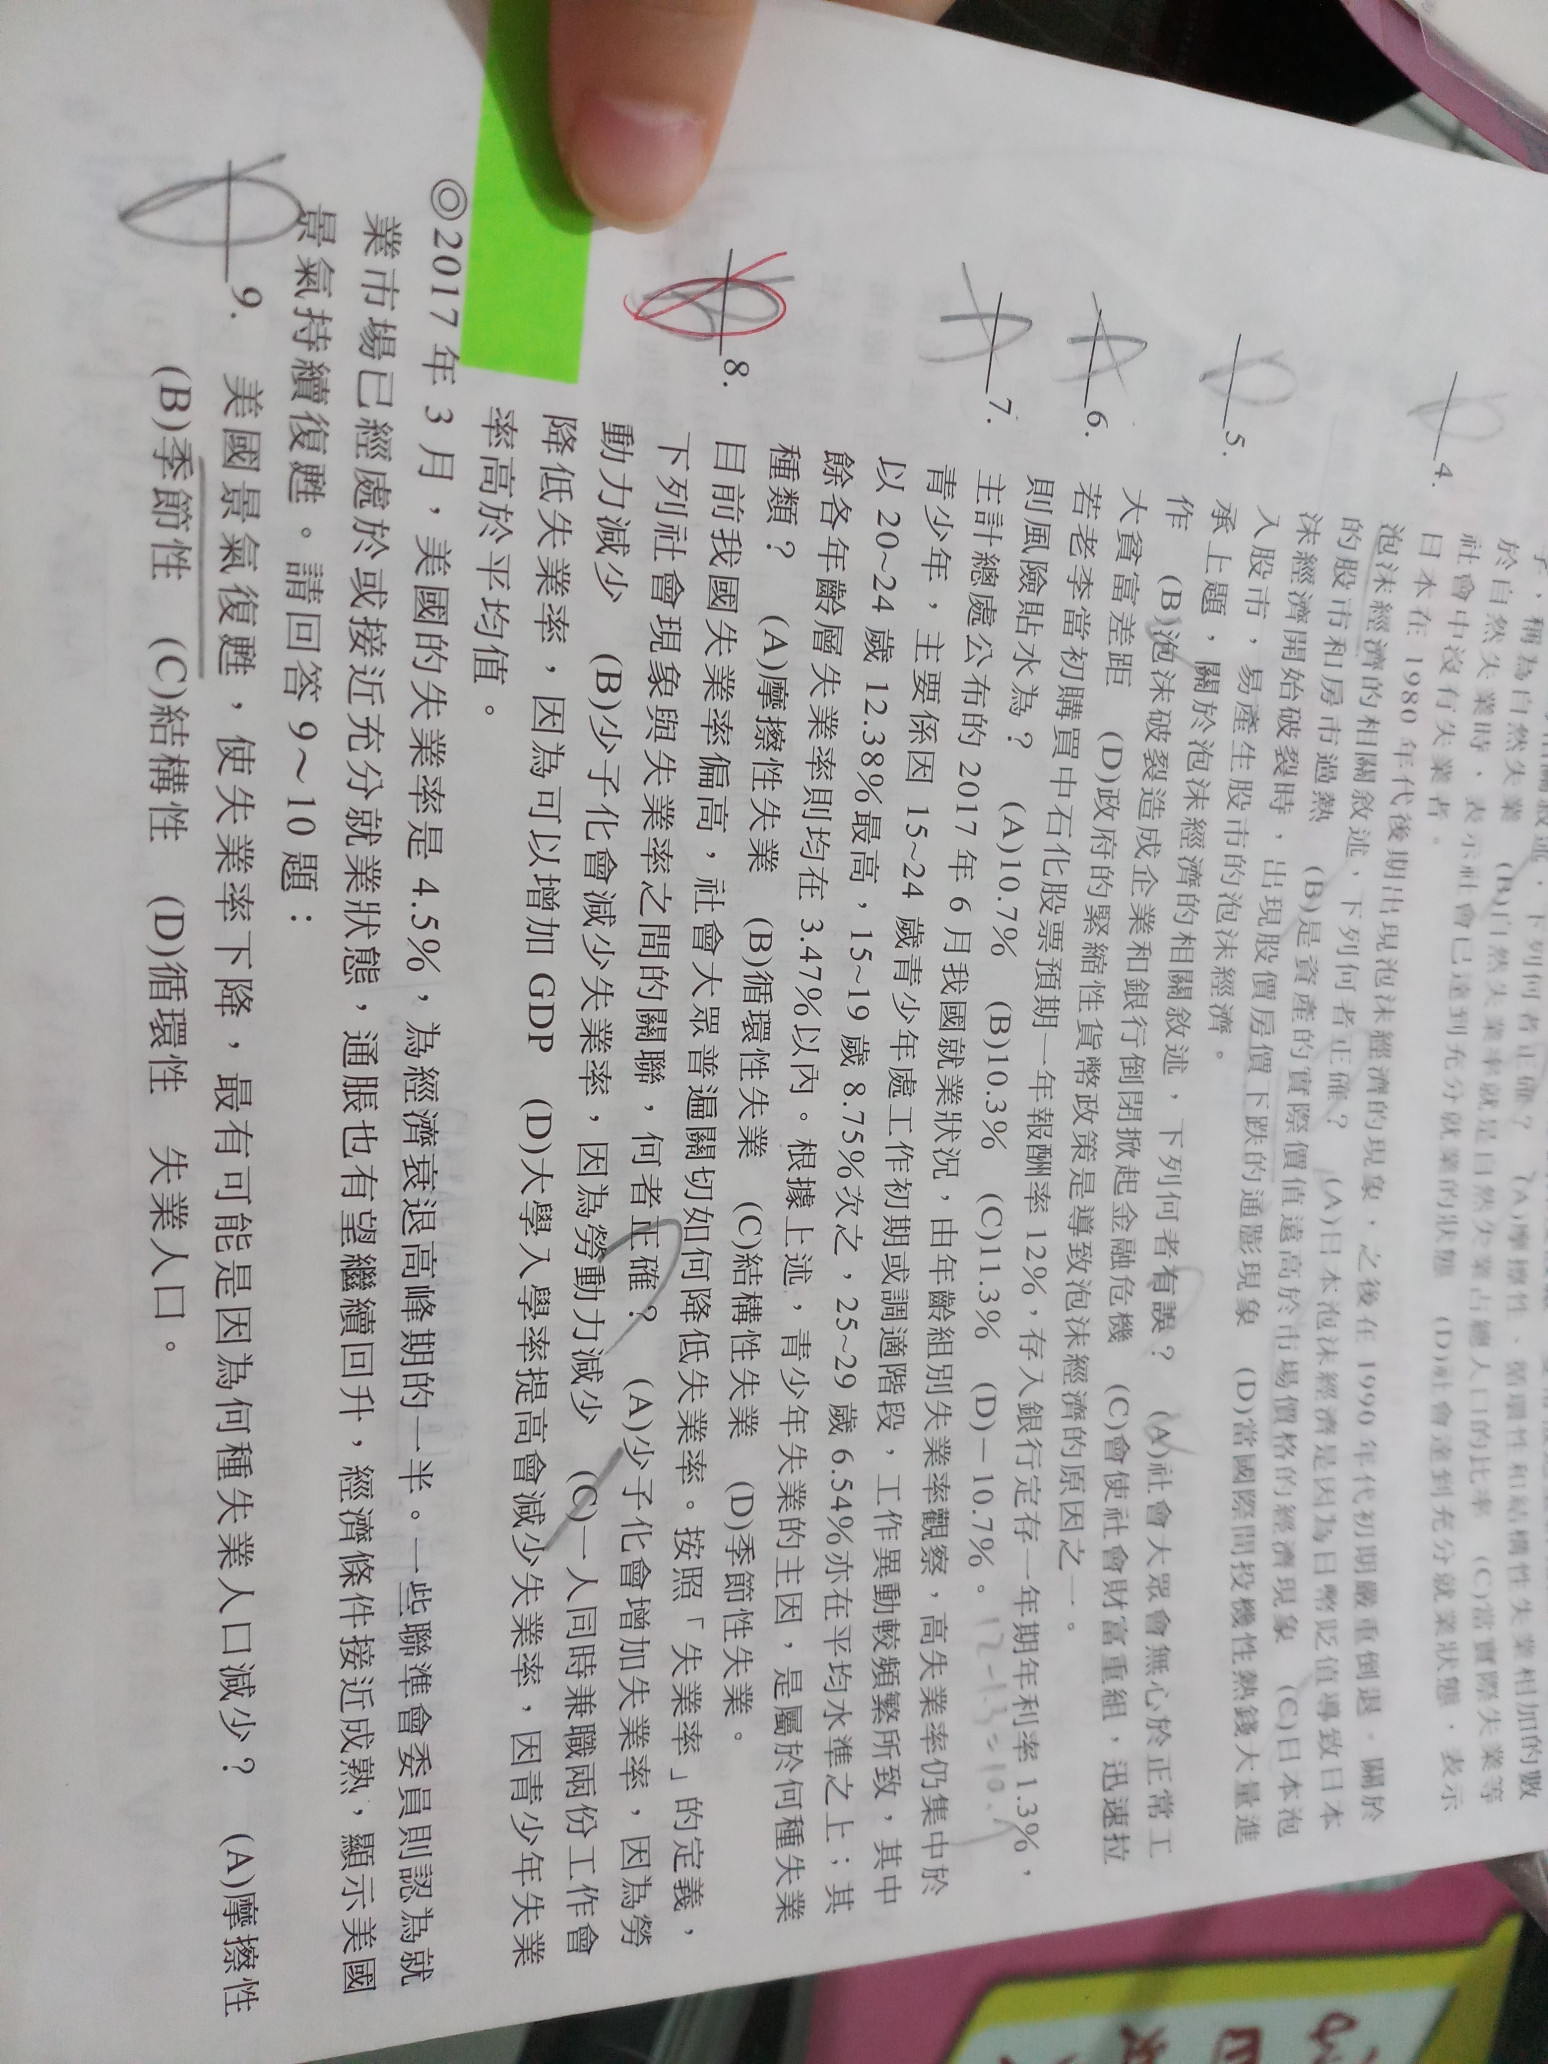 於自然失業時，表示社會已達到充分就業的狀態 (D)社會達到充分就業狀態，表示
社會中沒有失業者。
4. 日本在 1980 年代後期出現泡沫經濟的現象，之後在 1990 年代初期嚴重倒退。關於
泡沫經濟的相關敘述，下列何者正確？ (A)日本泡沫經濟是因為日幣貶值導致日本
的股市和房市過熱 (B)是資產的實際價值遠高於市場價格的經濟現象 (C)日本泡
沫經濟開始破裂時，出現股價房價下跌的通膨現象 (D)當國際間投機性熱錢大量進
入股市，易產生股市的泡沫經濟。
5. 承上題，關於泡沫經濟的相關敘述，下列何者有誤？ (A)社會大眾會無心於正常工
作 (B)泡沫破裂造成企業和銀行倒閉掀起金融危機 (C)會使社會財富重組，迅速拉
大貧富差距 (D)政府的緊縮性貨幣政策是導致泡沫經濟的原因之一。
6. 若老李當初購買中石化股票預期一年報酬率 12%，存入銀行定存一年期年利率 1.3%，
則風險貼水為？ (A)10.7% (B)10.3% (C)11.3% (D)－10.7%。 12-1.3=10.7
7. 主計總處公布的 2017 年 6 月我國就業狀況，由年齡組別失業率觀察，高失業率仍集中於
青少年，主要係因 15~24 歲青少年處工作初期或調適階段，工作異動較頻繁所致，其中
以 20~24 歲 12.38%最高，15~19 歲 8.75%次之，25~29 歲 6.54%亦在平均水準之上；其
餘各年齡層失業率則均在 3.47%以內。根據上述，青少年失業的主因，是屬於何種失業
種類？ (A)摩擦性失業 (B)循環性失業 (C)結構性失業 (D)季節性失業。
8. 目前我國失業率偏高，社會大眾普遍關切如何降低失業率。按照「失業率」的定義，
下列社會現象與失業率之間的關聯，何者正確？ (A)少子化會增加失業率，因為勞
動力減少 (B)少子化會減少失業率，因為勞動力減少 (C)一人同時兼職兩份工作會
降低失業率，因為可以增加 GDP (D)大學入學率提高會減少失業率，因青少年失業
率高於平均值。
◎2017 年 3 月，美國的失業率是 4.5%，為經濟衰退高峰期的一半。一些聯準會委員則認為就
業市場已經處於或接近充分就業狀態，通脹也有望繼續回升，經濟條件接近成熟，顯示美國
景氣持續復甦。請回答 9～10 題：
9. 美國景氣復甦，使失業率下降，最有可能是因為何種失業人口減少？ (A)摩擦性
(B)季節性 (C)結構性 (D)循環性 失業人口。